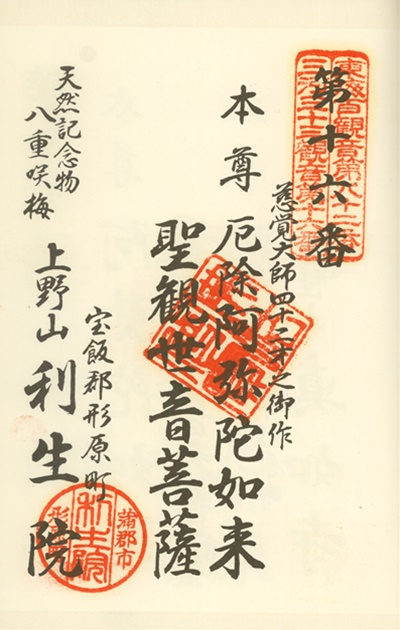 東海百観音第八十二番
三河三十三観音第十六番
第十六番
慈覚大師四十二才之御作
本尊 厄除阿弥陀如来
聖観世音菩薩
宝飯郡形原町
上野山利生院
天然記念物
八重咲梅
蒲郡市
利生院